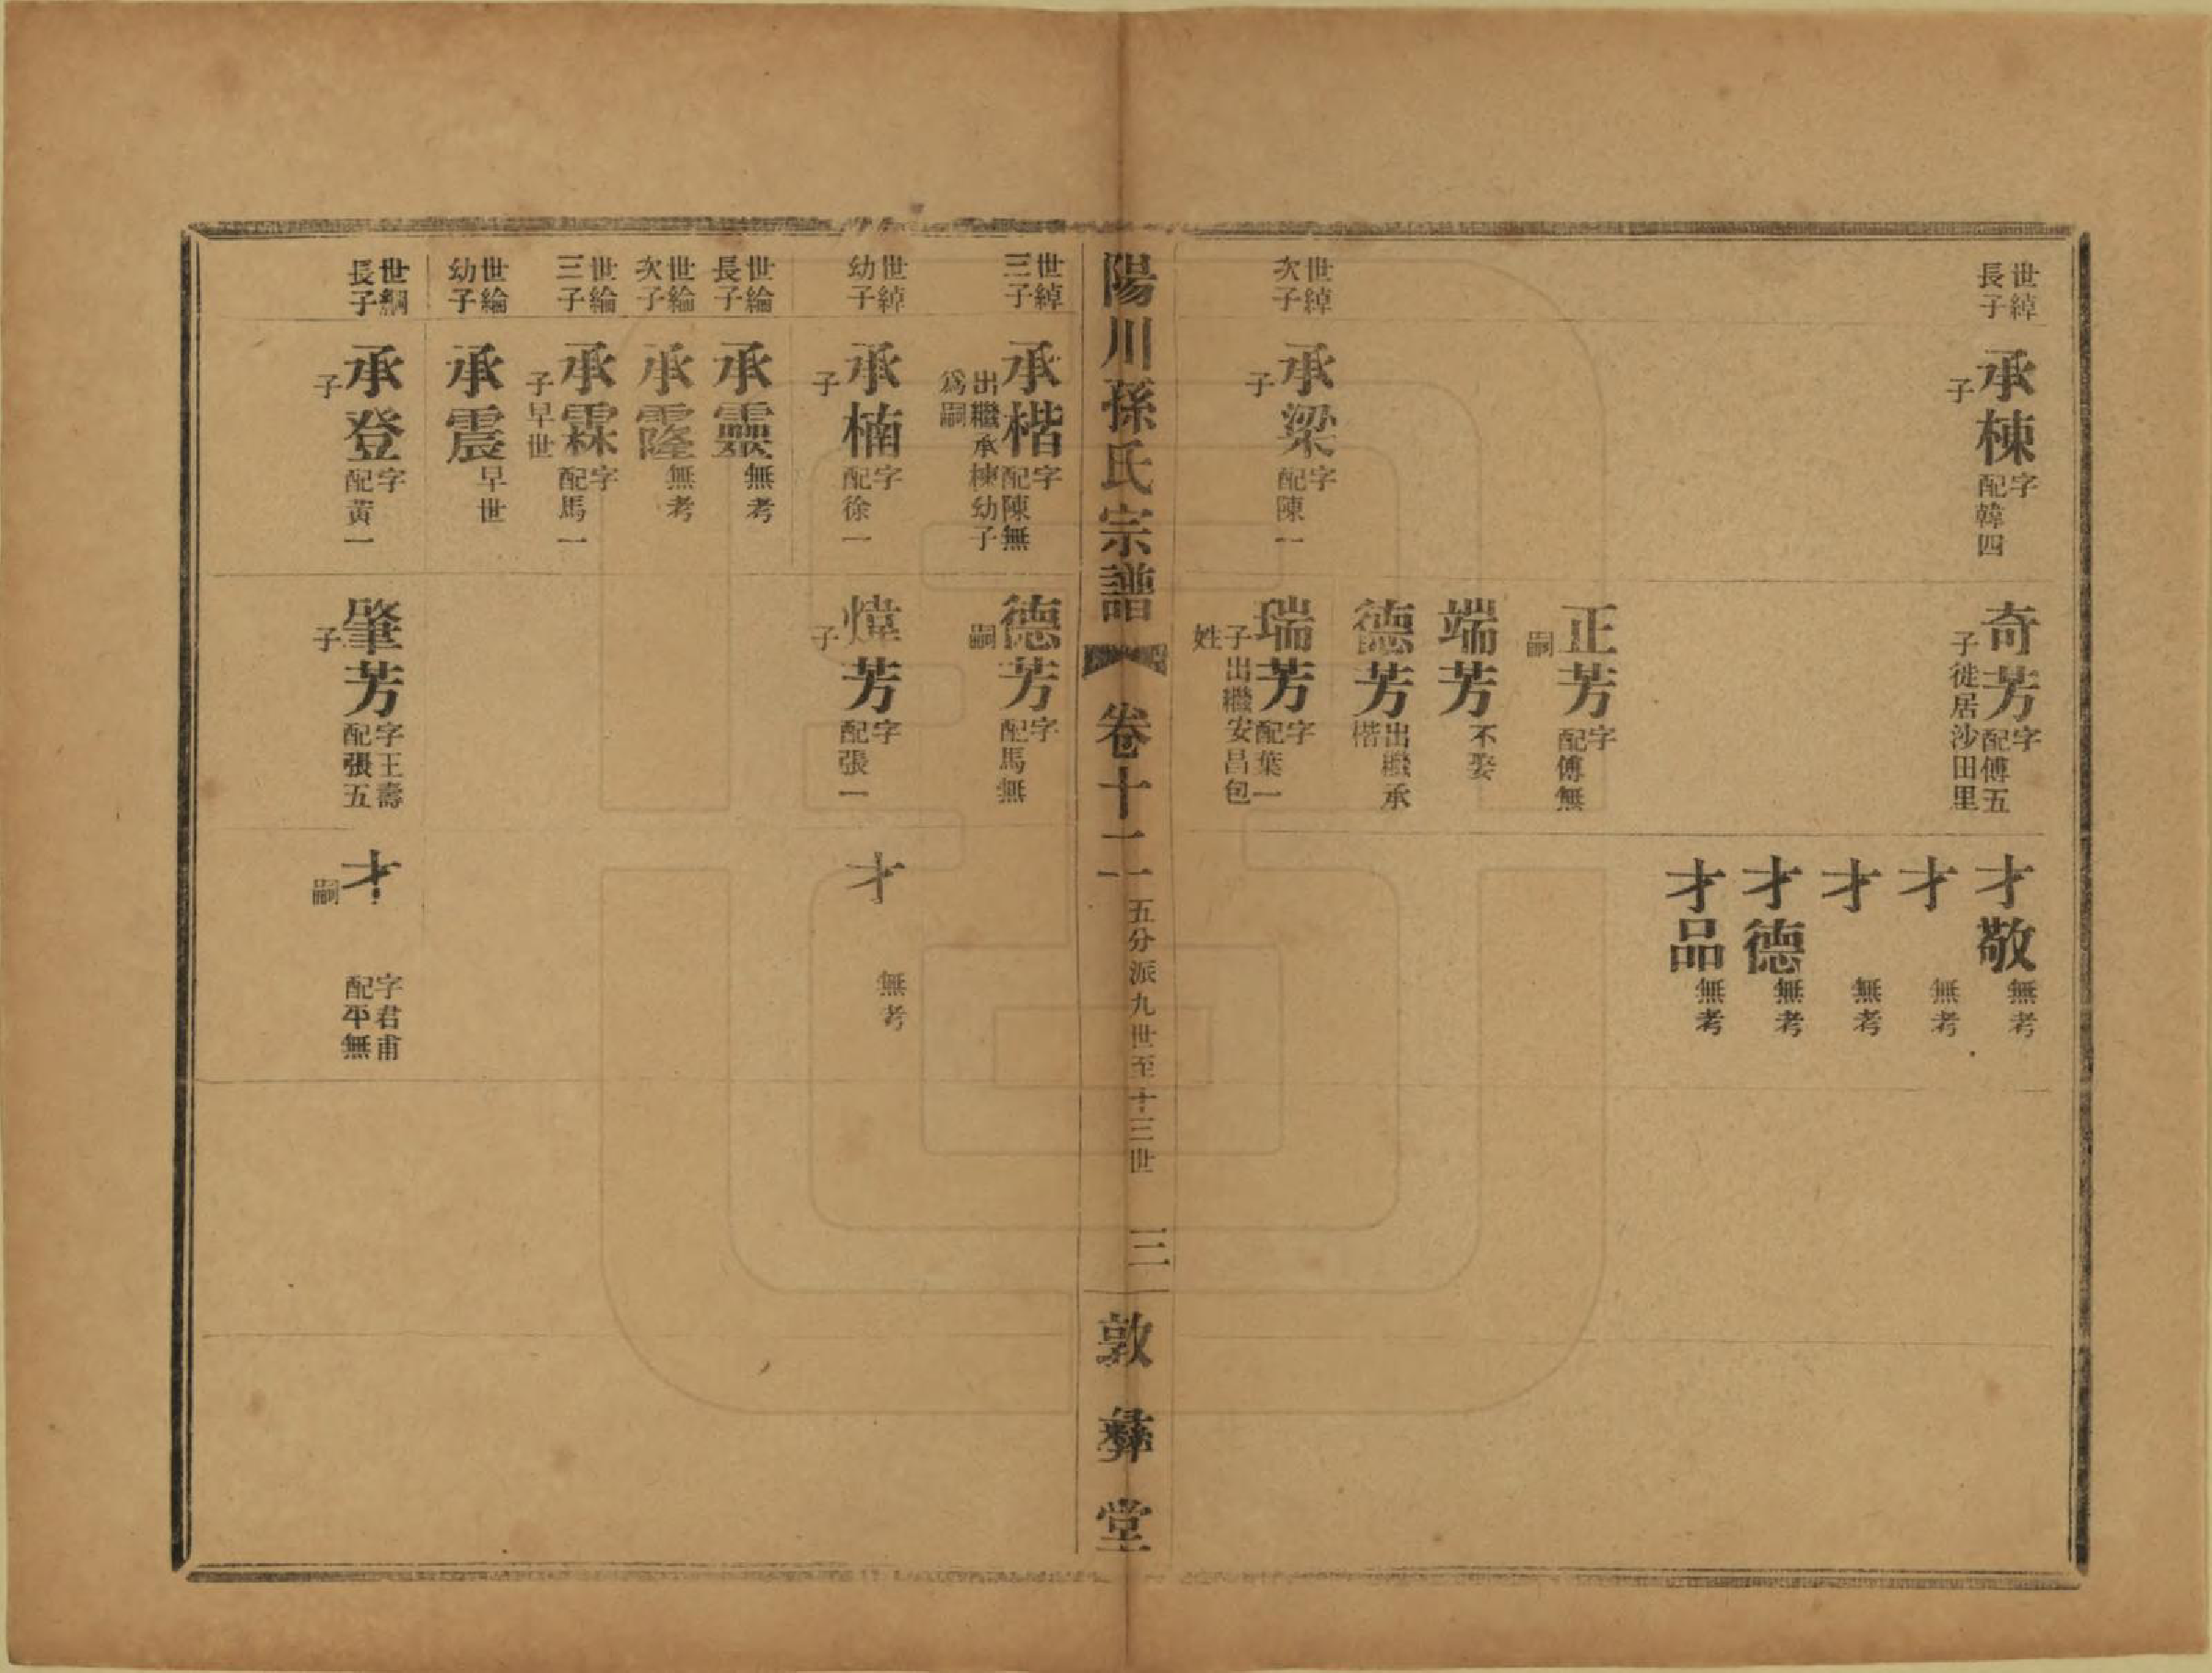 世綽長子
承棟字配韓四子
奇芳字配傅五子徙居沙田里
才敬無考
才 無考
才 無考
才德無考
才品無考
正芳字配傅無嗣
端芳不娶
德芳出繼承楷
世綽次子
承梁字配陳一子
瑞芳字配葉一子出繼安昌包姓
陽川孫氏宗譜 卷十二 五分派九世至十三世 三 敦彝堂
世綽三子
承楷字配陳無出繼承棟幼子爲嗣
德芳字配馬無嗣
世綽幼子
承楠字配徐一子
煒芳字配張一子
才 無考
世綸長子
承靈無考
世綸次子
承霳無考
世綸三子
承霖字配馬一子早世
世綸幼子
承震早世
世綱長子
承登字配黃一子
肇芳字王壽配張五子
才 字君甫配平無嗣